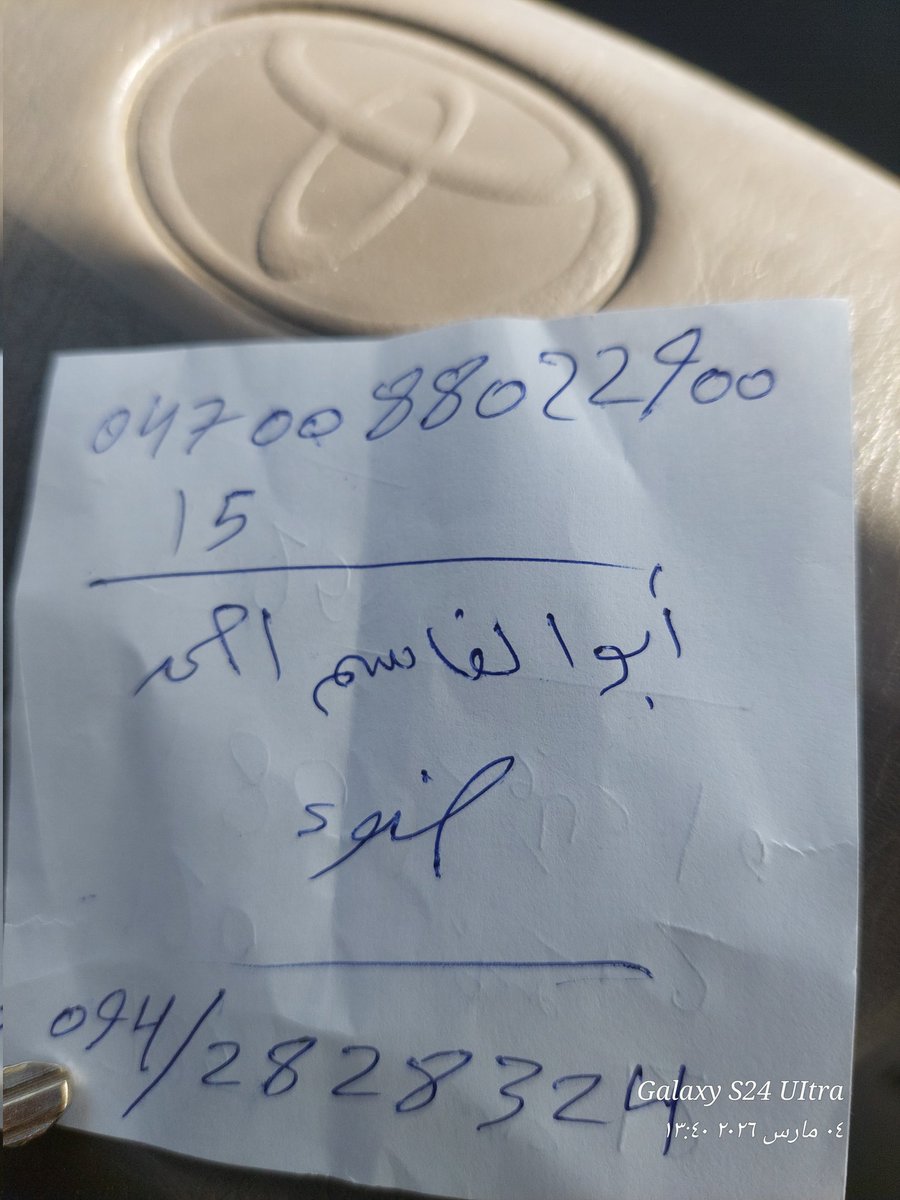 047008802290​0
15
أبوالقاسم امحمد
094/2828324
Galaxy S24 Ultra
٠٤ مارس ٢٠٢٦ ١٣:٤٠